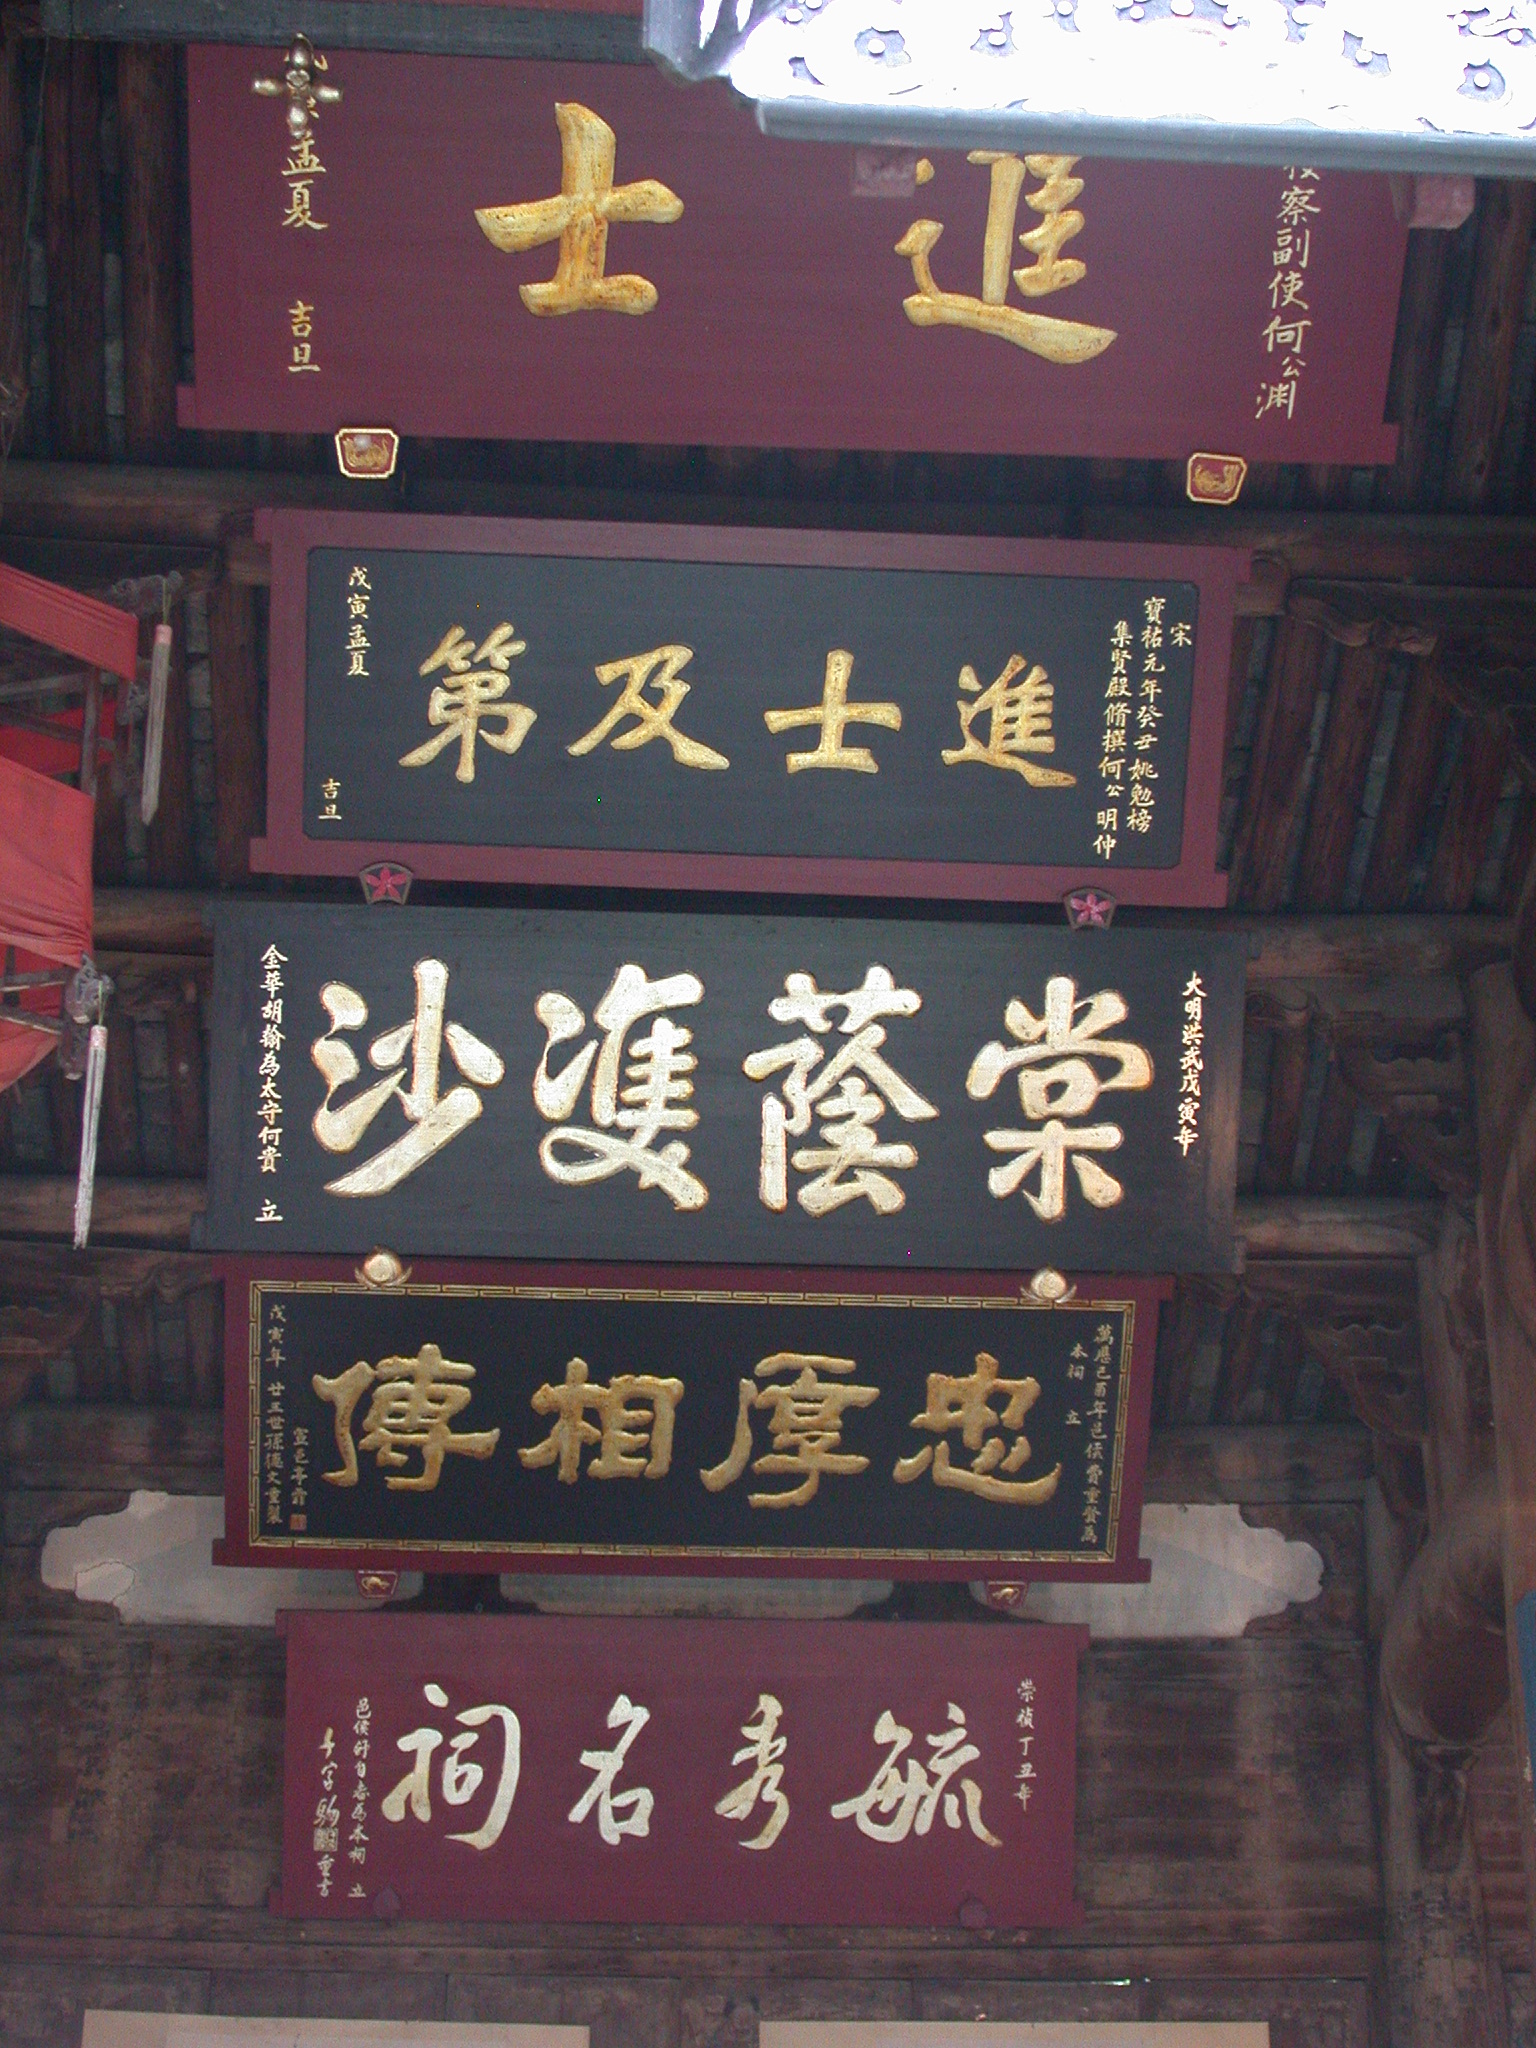 察副使何公渊
進士
孟夏 吉旦
宋
寶祐元年癸丑姚勉榜
集賢殿脩撰何公明仲
進士及第
戊寅孟夏
吉旦
大明洪武戊寅年
棠蔭雙沙
金華胡翰為太守何貴 立
萬歷己酉年邑侯費重發為
本祠 立
忠厚相傳
戊寅年 廿五世孫德文重製
崇禎丁丑年
毓秀名祠
邑侯 自 為本祠 立
重書